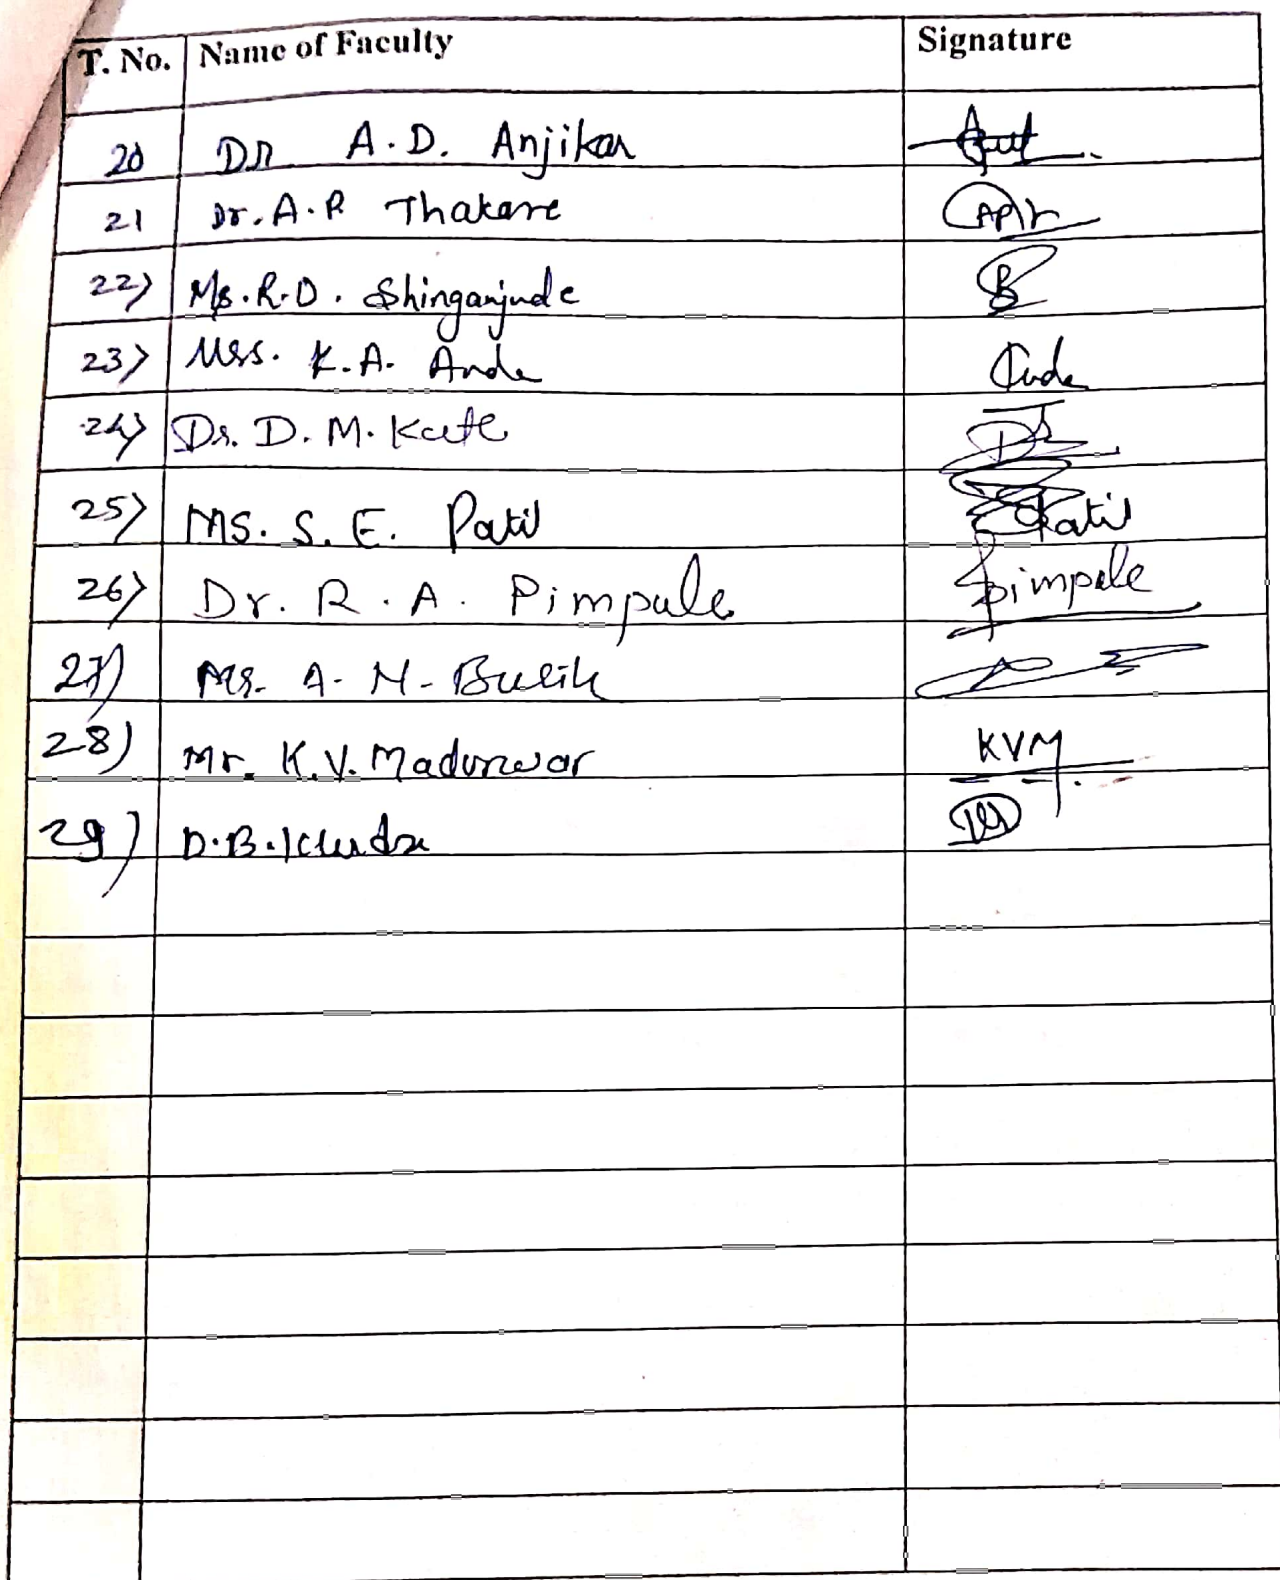 T. No. Name of Faculty Signature
20 Dr A.D. Anjikar
21 Dr. A.P. Thakare APTr
22) Ms. R.D. Shinganjude
23) Mrs. K.A. Ande Ande
24) Dr. D.M. Kate
25) Ms. S.E. Patil Patil
26) Dr. R.A. Pimpale Pimpale
27) Ms. A.
28) Mr. K.V. Madurwar KVM
29) D.B.